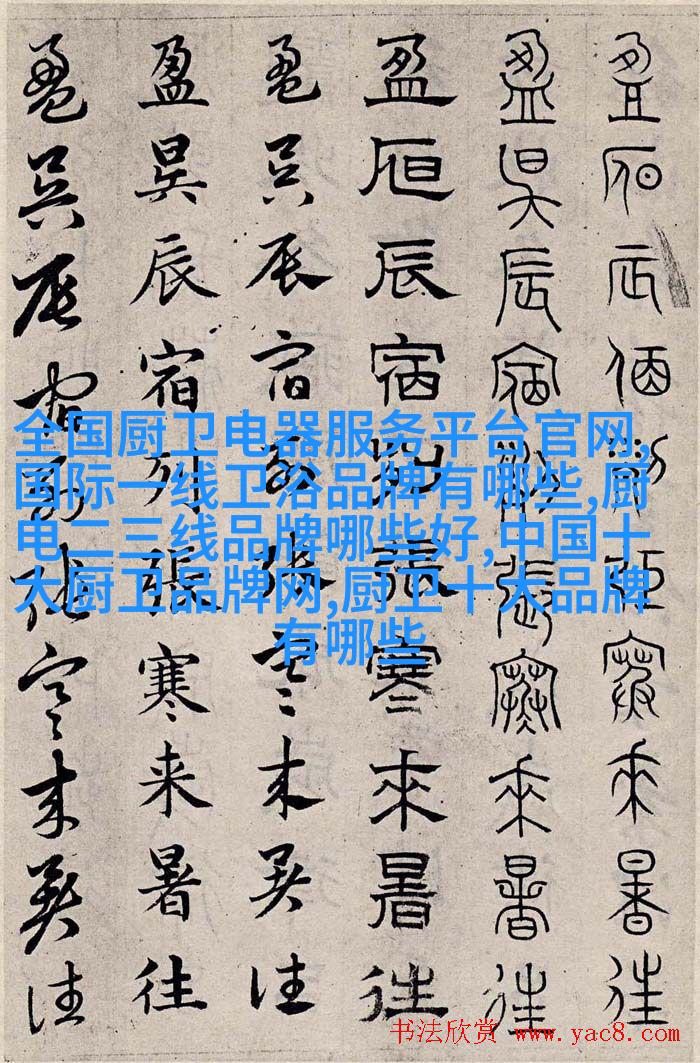 盈昃辰宿列張寒來暑往
盈昃辰宿列張寒來暑往
盈昃辰宿列張寒來暑往
盈昃辰宿列張寒来暑往
盈昃辰宿列張寒来暑往
盈昃辰宿列張寒来暑往
全国厨卫电器服务平台官网,
国际一线卫浴品牌有哪些,厨
电二三线品牌哪些好,中国十
大厨卫品牌网,厨卫十大品牌
有哪些
书法欣赏 www.yac8.com